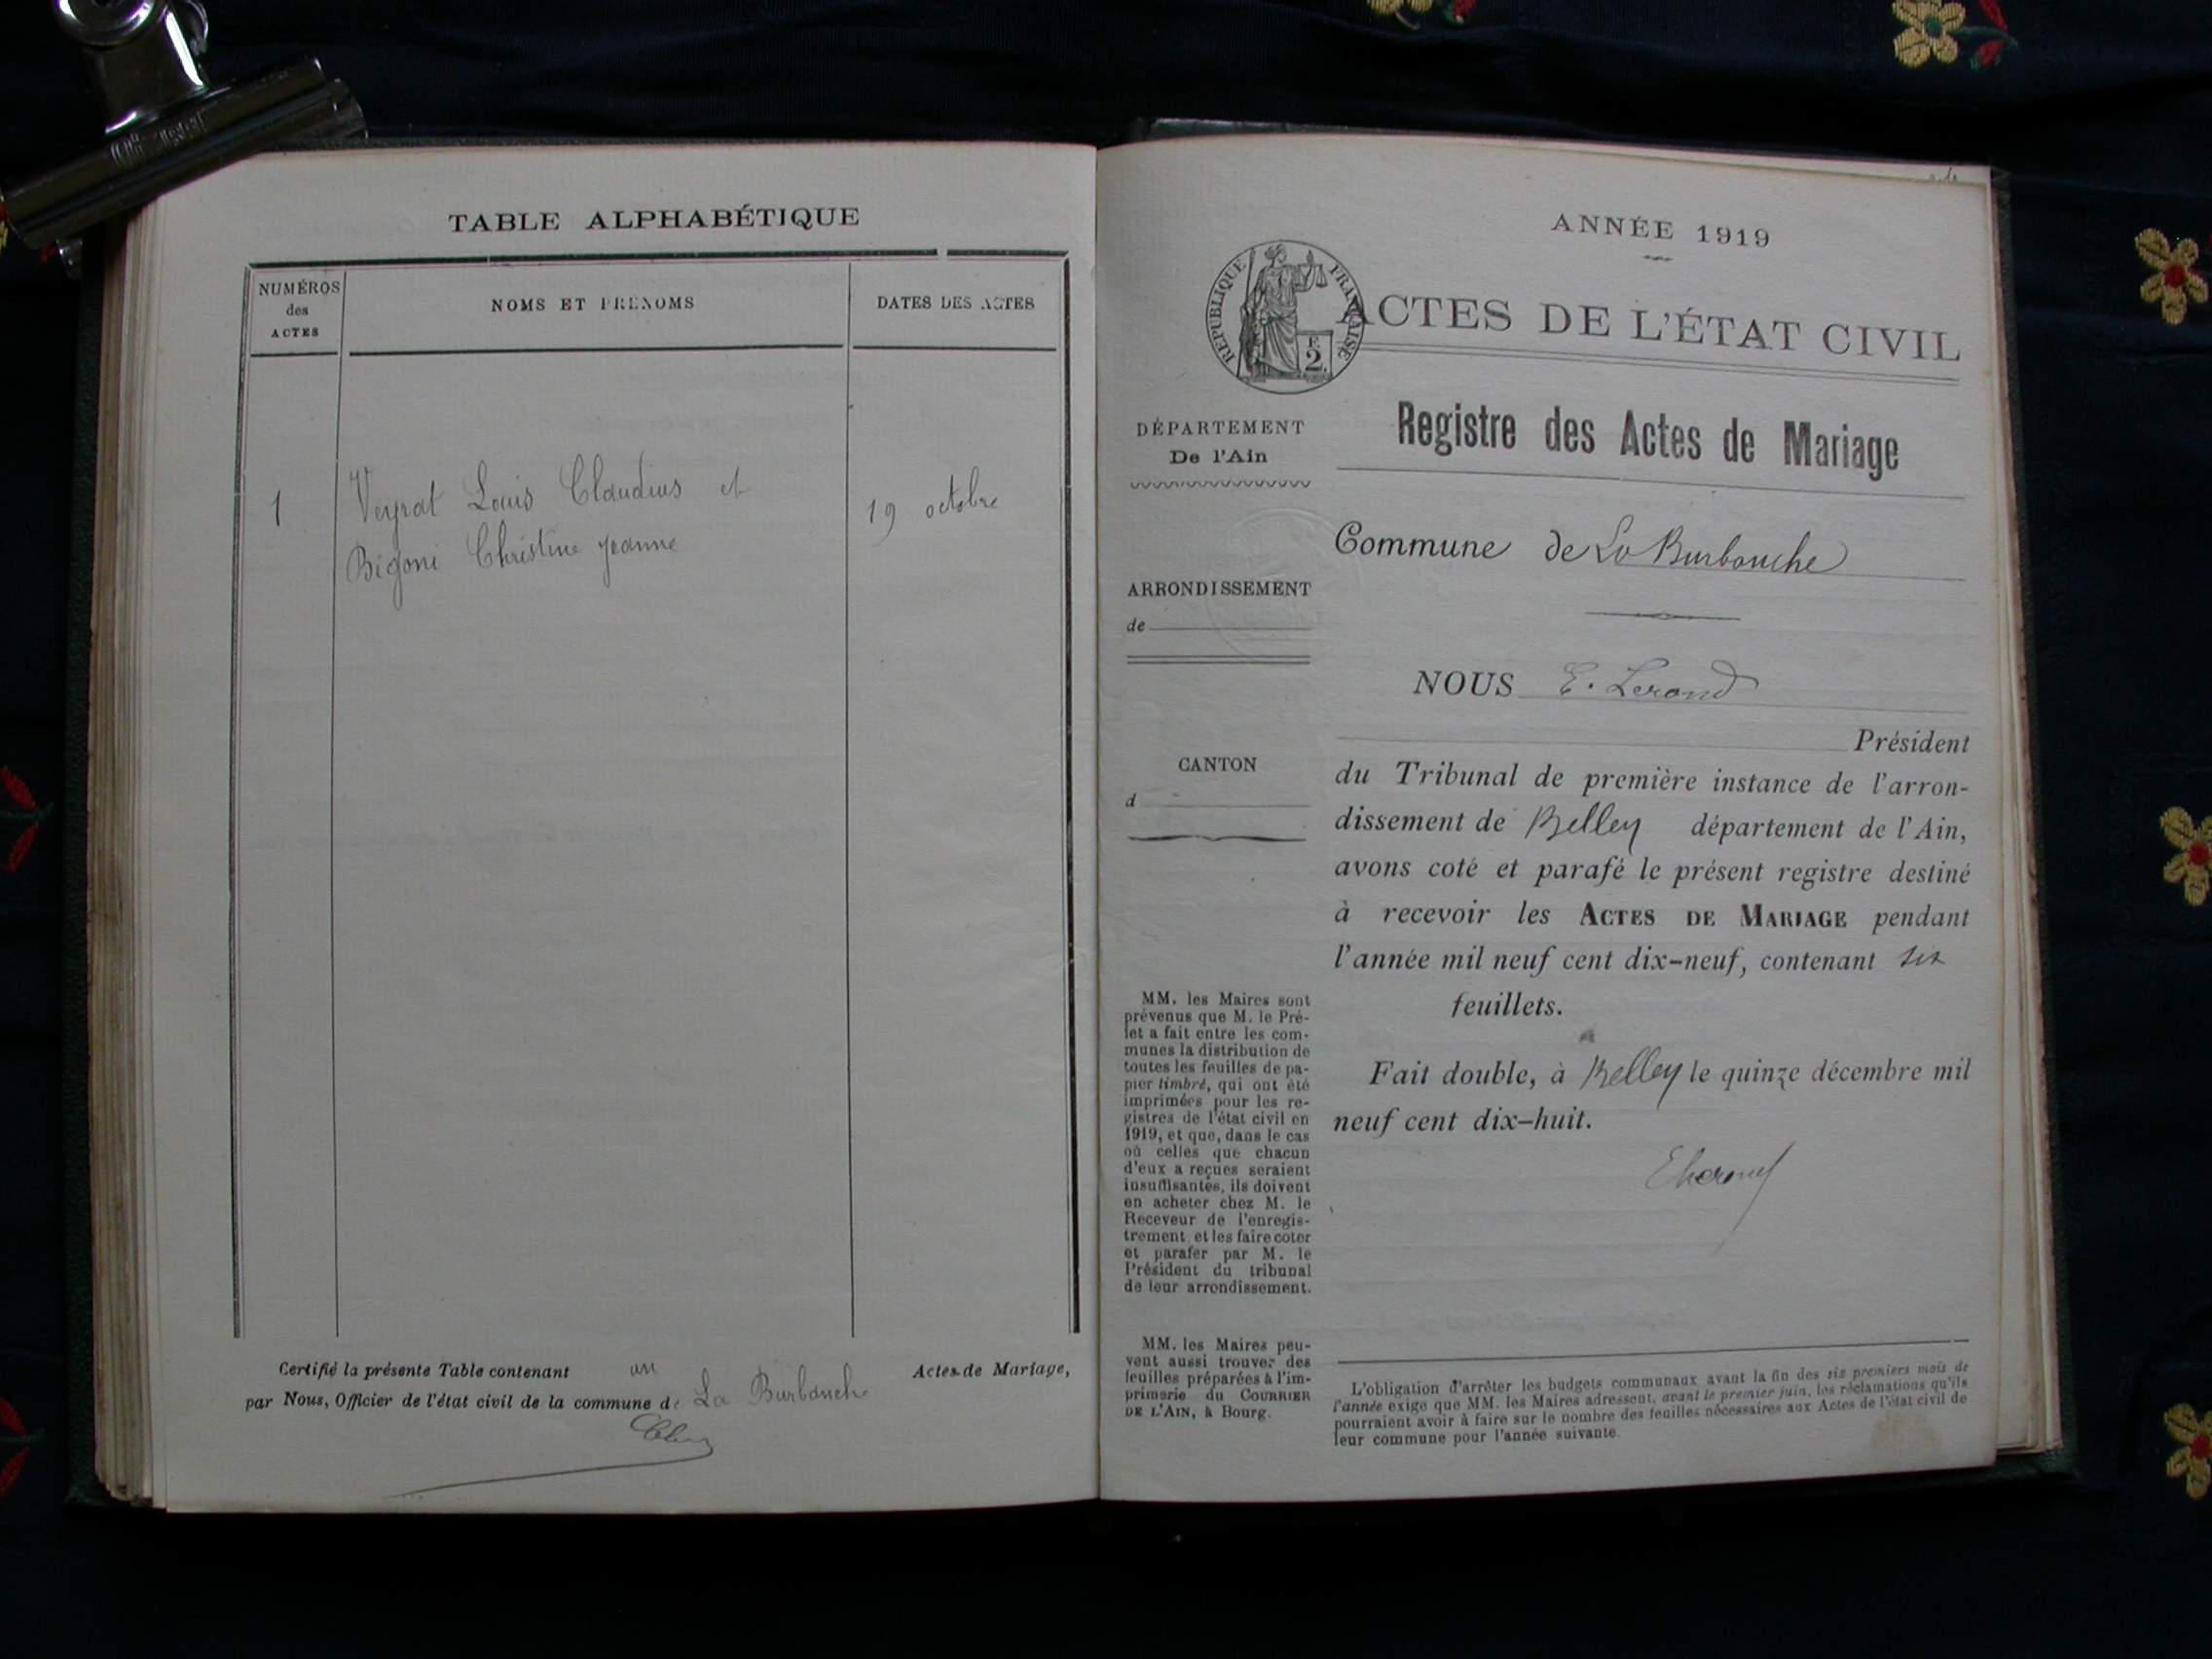 TABLE ALPHABÉTIQUE
NUMÉROS
des
ACTES
NOMS ET PRÉNOMS
DATES DES ACTES
1
Veyrat Louis Claudius et
Bigoni Christine Jeanne
19 octobre
Certifié la présente Table contenant un Actes de Mariage,
par Nous, Officier de l'état civil de la commune de La Burbanche
ANNÉE 1919
RÉPUBLIQUE FRANÇAISE
F.
2.
ACTES DE L'ÉTAT CIVIL
DÉPARTEMENT
De l'Ain
ARRONDISSEMENT
de
CANTON
d
MM. les Maires sont
prévenus que M. le Pré-
fet a fait entre les com-
munes la distribution de
toutes les feuilles de pa-
pier timbré, qui ont été
imprimées pour les re-
gistres de l'état civil en
1919, et que, dans le cas
où celles que chacun
d'eux a reçues seraient
insuffisantes, ils doivent
en acheter chez M. le
Receveur de l'enregis-
trement et les faire coter
et parafer par M. le
Président du tribunal
de leur arrondissement.
MM. les Maires peu-
vent aussi trouver des
feuilles préparées à l'im-
primerie du COURRIER
DE L'AIN, à Bourg.
Registre des Actes de Mariage
Commune de La Burbanche
NOUS E. Lerand
Président
du Tribunal de première instance de l'arron-
dissement de Belley département de l'Ain,
avons coté et parafé le présent registre destiné
à recevoir les ACTES DE MARIAGE pendant
l'année mil neuf cent dix-neuf, contenant six
feuillets.
Fait double, à Belley le quinze décembre mil
neuf cent dix-huit.
L'obligation d'arrêter les budgets communaux avant la fin des six premiers mois de
l'année exige que MM. les Maires adressent, avant le premier juin, les réclamations qu'ils
pourraient avoir à faire sur le nombre des feuilles nécessaires aux Actes de l'état civil de
leur commune pour l'année suivante.